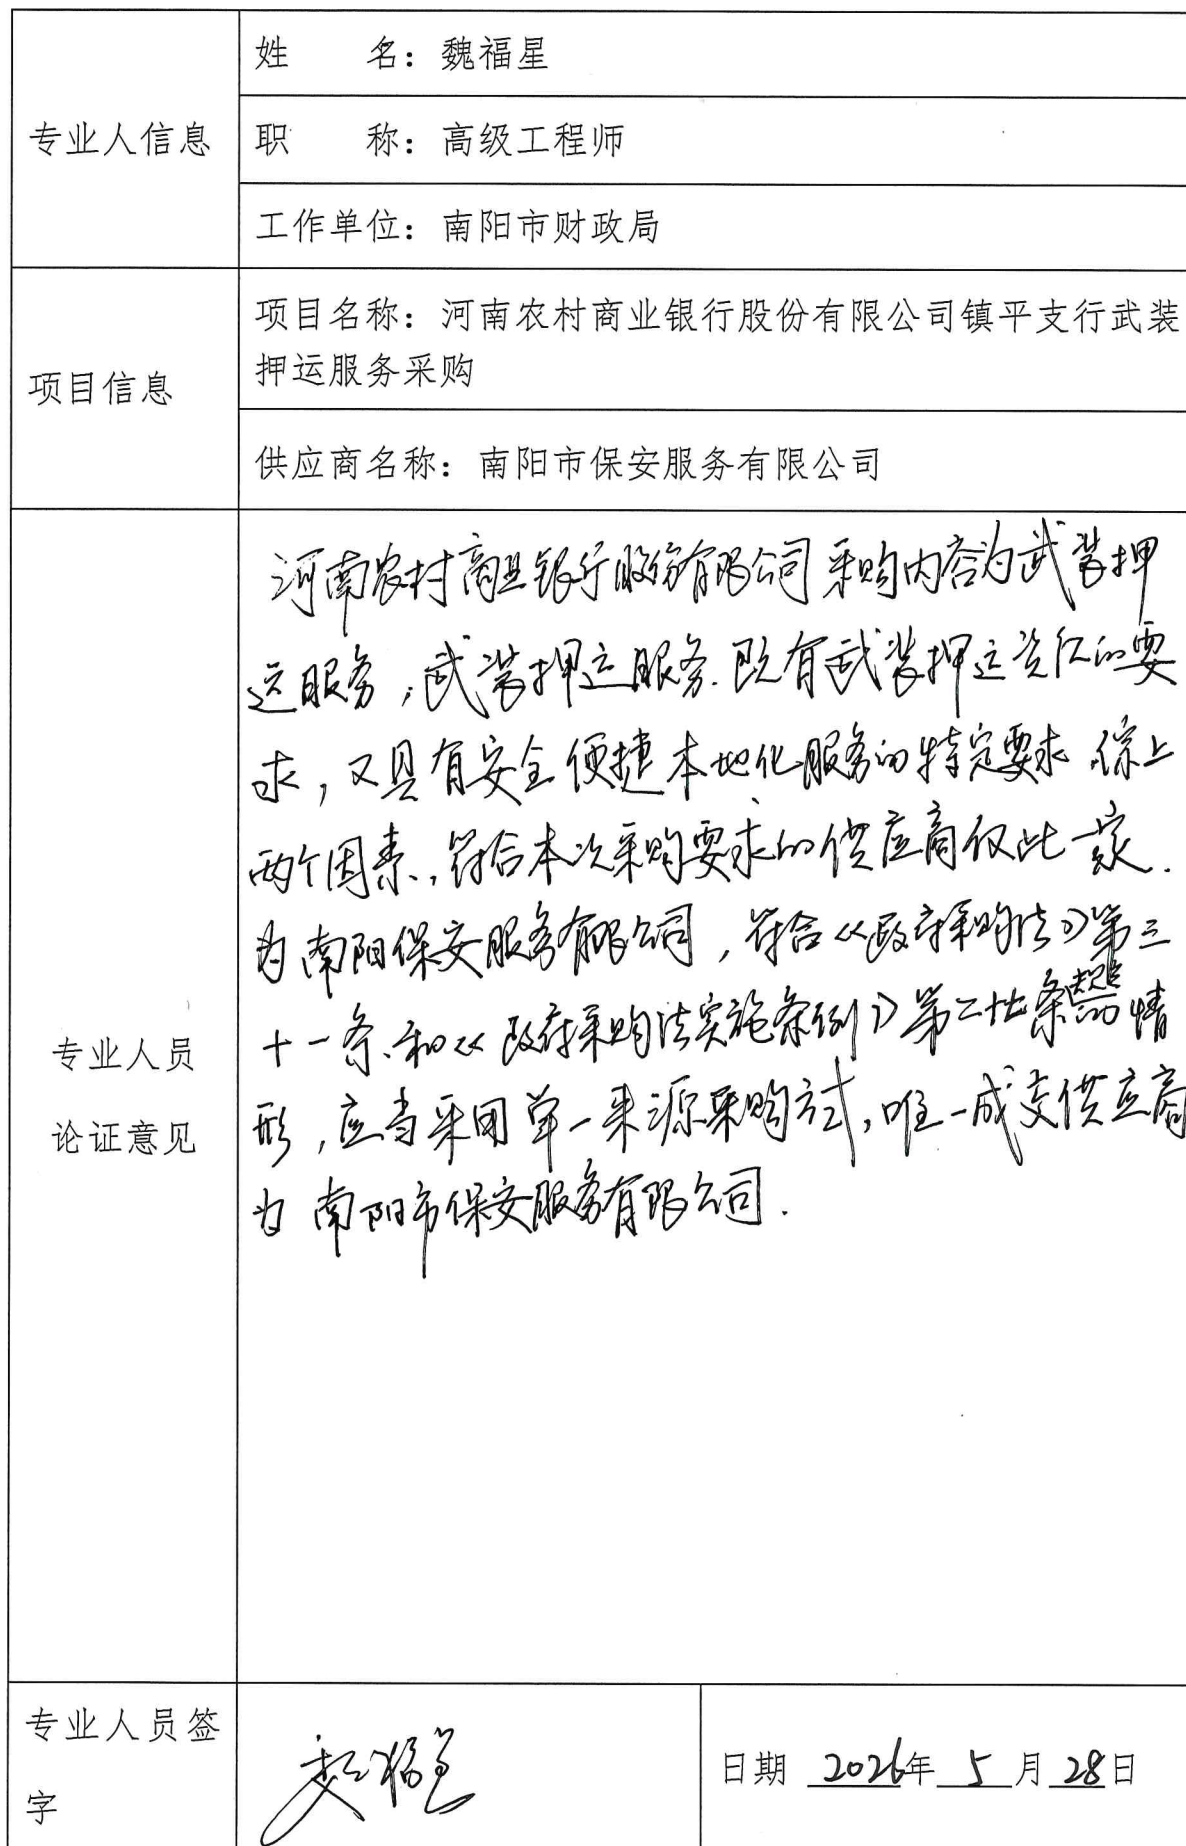 姓 名：魏福星
专业人信息
职 称：高级工程师
工作单位：南阳市财政局
项目信息
项目名称：河南农村商业银行股份有限公司镇平支行武装
押运服务采购
供应商名称：南阳市保安服务有限公司
专业人员
论证意见
河南农村商业银行股份有限公司采购内容为武装押
运服务，武装押运服务.既有武装押运资质的要
求，又具有安全便捷本地化服务的特定要求.综上
两个因素，符合本次采购要求的供应商仅此一家.
为南阳保安服务有限公司，符合《政府采购法》第三
十一条.和《政府采购法实施条例》第二十七条规定的情
形，应当采用单一来源采购方式，唯一成交供应商
为南阳市保安服务有限公司.
专业人员签
字
魏福星
日期 2026年 5 月 28日